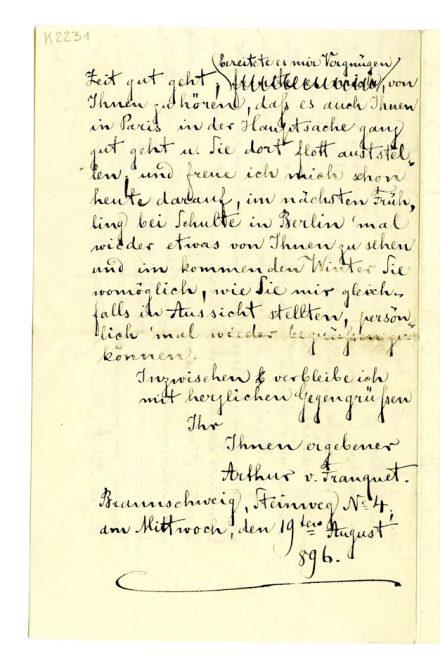 K2231
bereitete es mir Vergnügen
Zeit gut geht, von
Ihnen zu hören, daß es auch Ihnen
in Paris in der Hauptsache ganz
gut geht u. Sie dort flott ausstel-
len, und freue ich mich schon
heute darauf, im nächsten Früh-
ling bei Schulte in Berlin 'mal
wieder etwas von Ihnen zu sehen
und im kommenden Winter Sie
womöglich, wie Sie mir gleich-
falls in Aussicht stellten, persön-
lich 'mal wieder begrüßen zu
können.
Inzwischen verbleibe ich
mit herzlichen Gegengrüßen
Ihr
Ihnen ergebener
Arthur v. Franquet.
Braunschweig, Steinweg No 4,
am Mittwoch, den 19ten August
896.